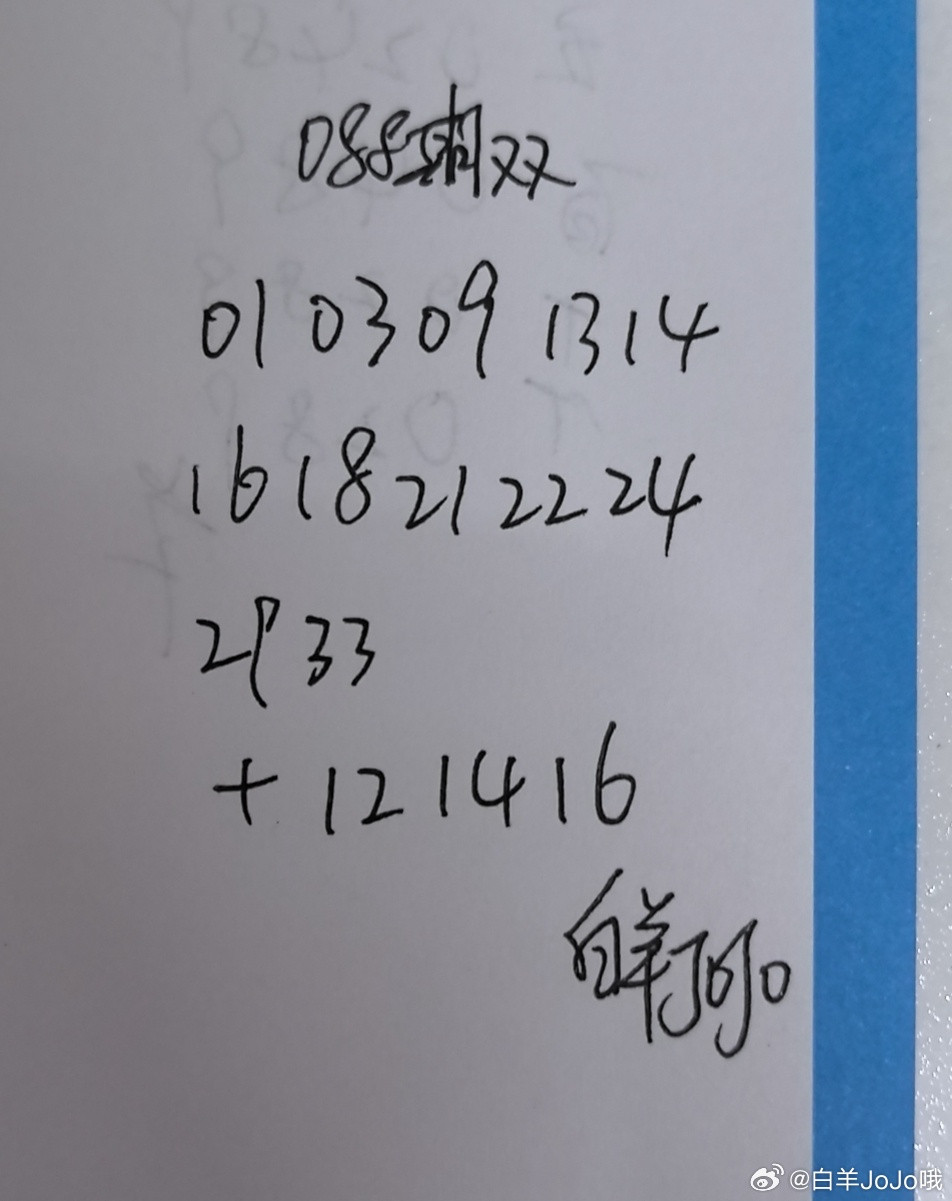 088期双
01 03 09 13 14
16 18 21 22 24
29 33
+ 12 14 16
白羊JoJo
@白羊JoJo哦